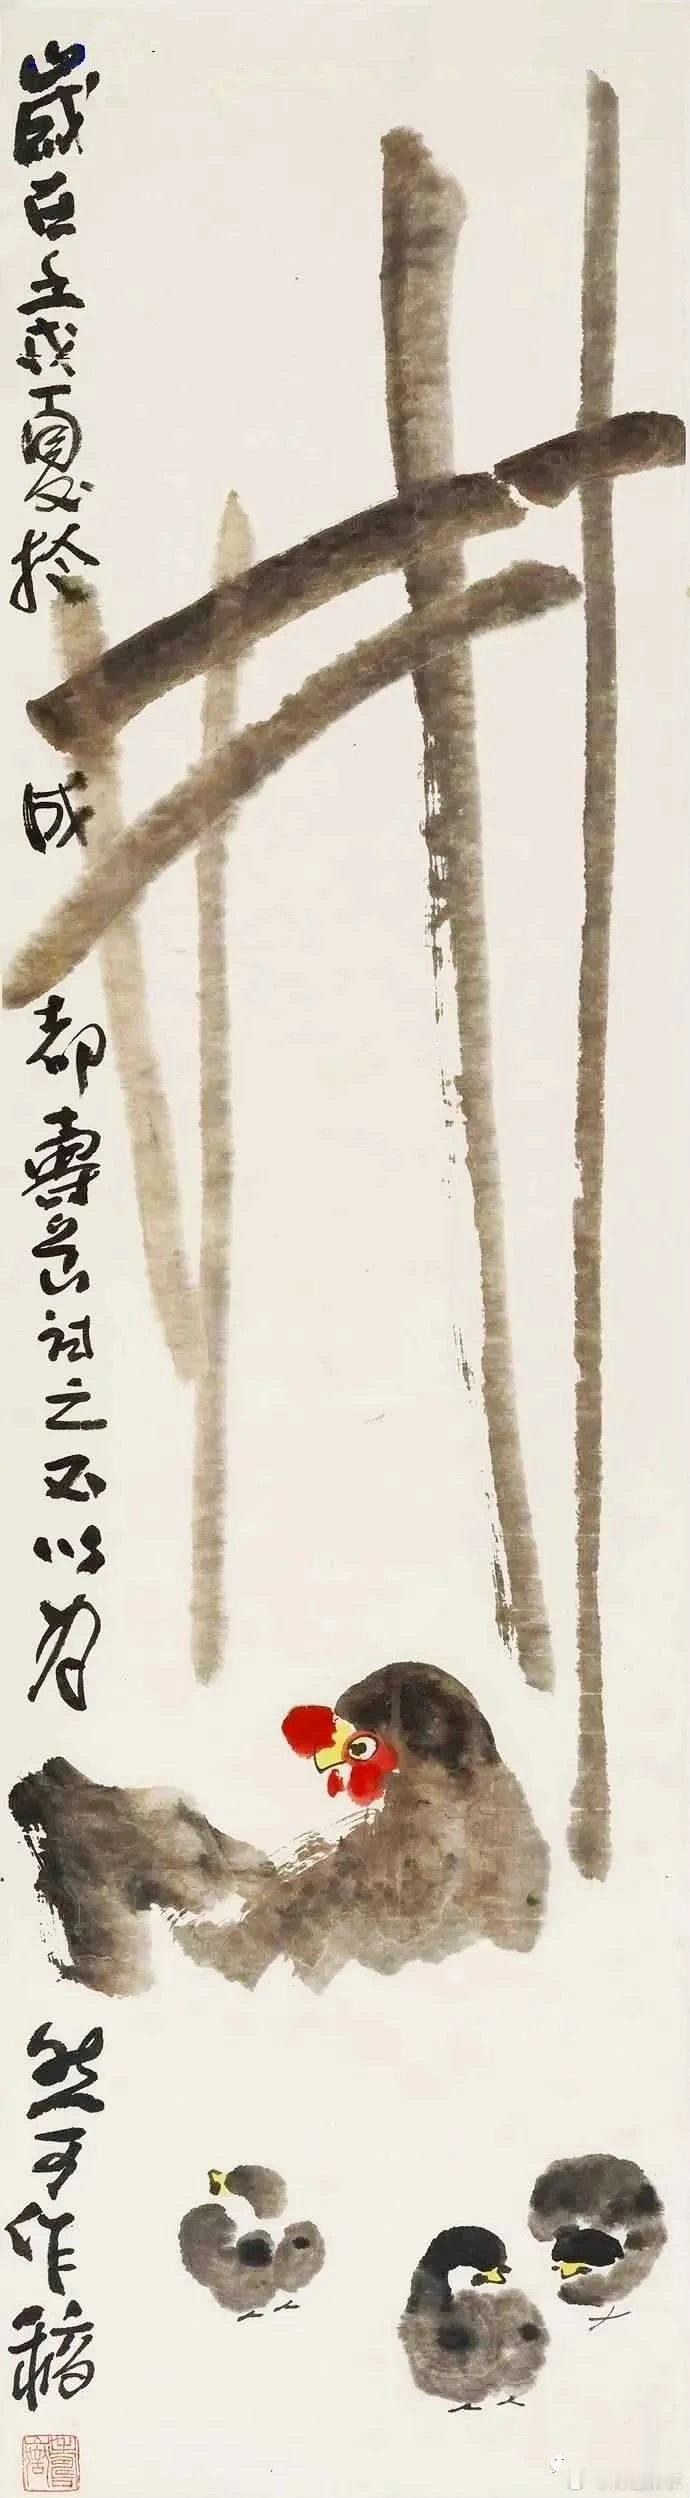 歲在壬戌夏於成都壽岳試之不以為然可作稿